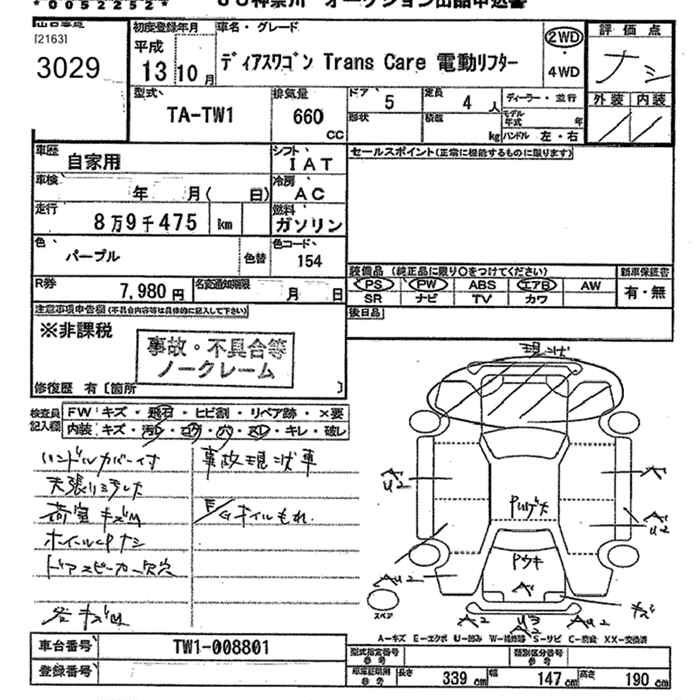 *0052252*
ＪＵ神奈川 オークション出品申込書
[2163]
3029
初度登録年月
平成
13 10月
車名・グレード
ディアスワゴン Trans Care 電動リフター
2WD
・
4WD
評価点
ナシ
外装 内装
型式
TA-TW1
排気量
660
CC
ドア
5
定員
4 人
形状
積載
kg
ディーラー・並行
モデル年式 年
ハンドル 左・右
車歴
自家用
シフト
IAT
セールスポイント(正常に機能するものに限ります)
車検
年 月( 日)
冷房
AC
走行
8万9千475 km
燃料
ガソリン
色
パープル
色替
色コード
154
装備品 (純正品に限り○をつけてください)
新車保証書
PS PW ABS エアB AW
SR ナビ TV カワ
有・無
R券
7,980 円
名変通知期限
月 日
後日品
注意事項申告欄(不具合内容等は具体的に記入して下さい)
※非課税
事故・不具合等
ノークレーム
修復歴 有〔箇所 〕
検査員
記入欄
FW キズ・飛石・ヒビ割・リペア跡・×要
内装 キズ・汚レ・コゲ・穴・スレ・キレ・破レ
ハンドルカバー付
天張りヨゴレ
荷室キズM
ホイールCPナシ
ドアスピーカー欠穴
各キズM
事故現状車
E/Gオイルもれ
現状
A U2
A
A U2
A U2
Pサビ大
Pウキ
A
キズ
A2
U3
A2
AU2
スペア
A-キズ E-エクボ U-凹み W-補修跡 S-サビ C-腐食 XX-交換済
車台番号
TW1-008801
登録番号
型式指定番号
参考
類別区分番号
参考
参考
長さ
339 cm
幅
147 cm
高さ
190 cm